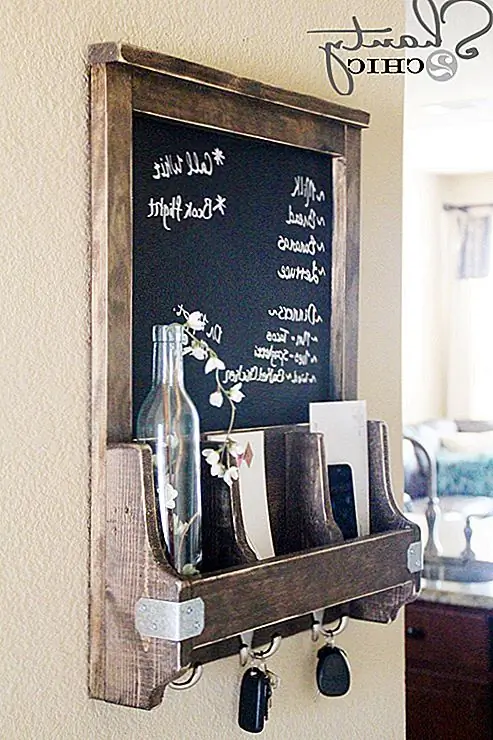 Shanty
2 CHIC
~Milk
~Bread
~Bananas
~Lettuce
~Dinners
~Mon-Tacos
~Tues-Spaghetti
~Wed-Baked Chicken
*Call Whit
*Book Flight
Dr.